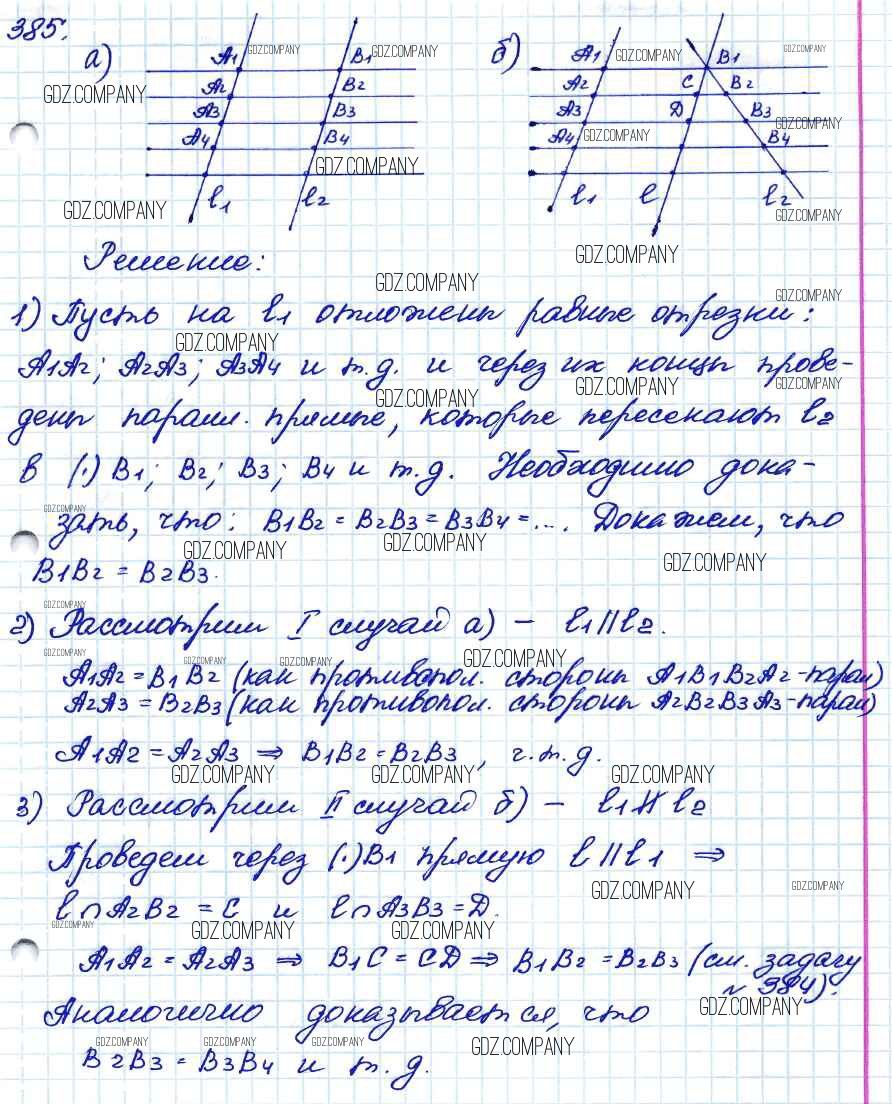 385.
а)
A1 B1
A2 B2
A3 B3
A4 B4
l1 l2
б)
A1 B1
A2 C B2
A3 D B3
A4 B4
l1 l l2
GDZ.COMPANY
Решение:
1) Пусть на l1 отложены равные отрезки:
A1A2; A2A3; A3A4 и т.д. и через их концы прове-
дены паралл. прямые, которые пересекают l2
в (·) B1; B2; B3; B4 и т.д. Необходимо дока-
зать, что: B1B2 = B2B3 = B3B4 = .... Докажем, что
B1B2 = B2B3.
2) Рассмотрим I случай а) – l1 || l2.
A1A2 = B1B2 (как противопол. стороны A1B1B2A2-парал)
A2A3 = B2B3 (как противопол. стороны A2B2B3A3-парал)
A1A2 = A2A3 ⇒ B1B2 = B2B3, ч.т.д.
3) Рассмотрим II случай б) – l1 ∦ l2
Проведем через (·) B1 прямую l || l1 ⇒
l ∩ A2B2 = C и l ∩ A3B3 = D.
A1A2 = A2A3 ⇒ B1C = CD ⇒ B1B2 = B2B3 (см. задачу
№ 384).
Аналогично доказывается, что
B2B3 = B3B4 и т.д.